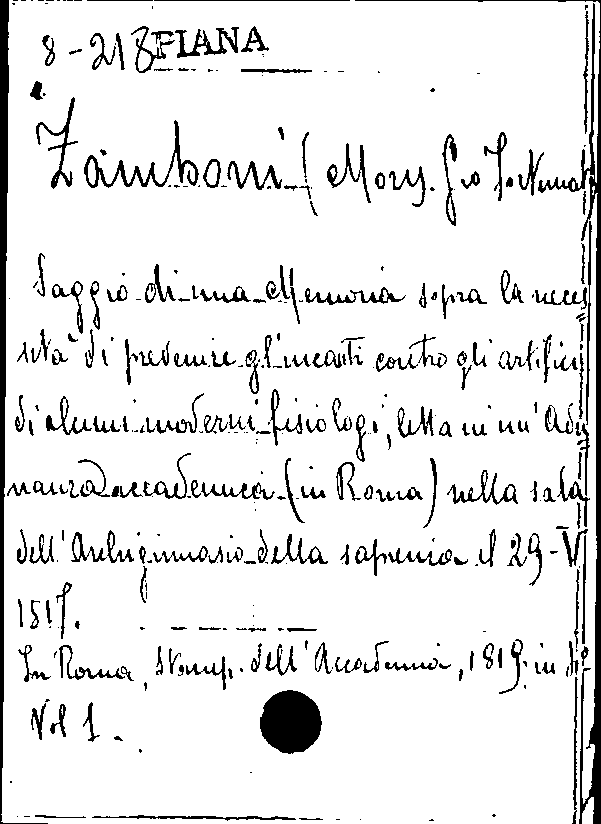 8-218 PIANA
Zamboni (Mons. Gio Fortunato
Saggio di una Memoria sopra la neces
sità di prevenire gl'incauti contro gli artifici
di alcuni moderni fisiologi, letta in un' Adu
nanza accademica (in Roma) nella sala
dell'Archiginnasio della sapienza il 29-V
1817.
In Roma, stamp. dell'Accademia, 1819. in
Vol 1.